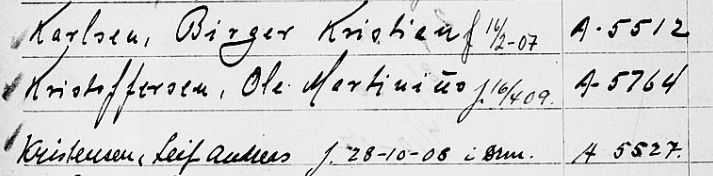 Karlsen, Birger Kristian f 16/2-07 A-5512
Kristoffersen, Ole Martinius f. 16/4 09. A-5764
Kristensen, Leif Anders f. 28-10-08 i Drm. A 5527.